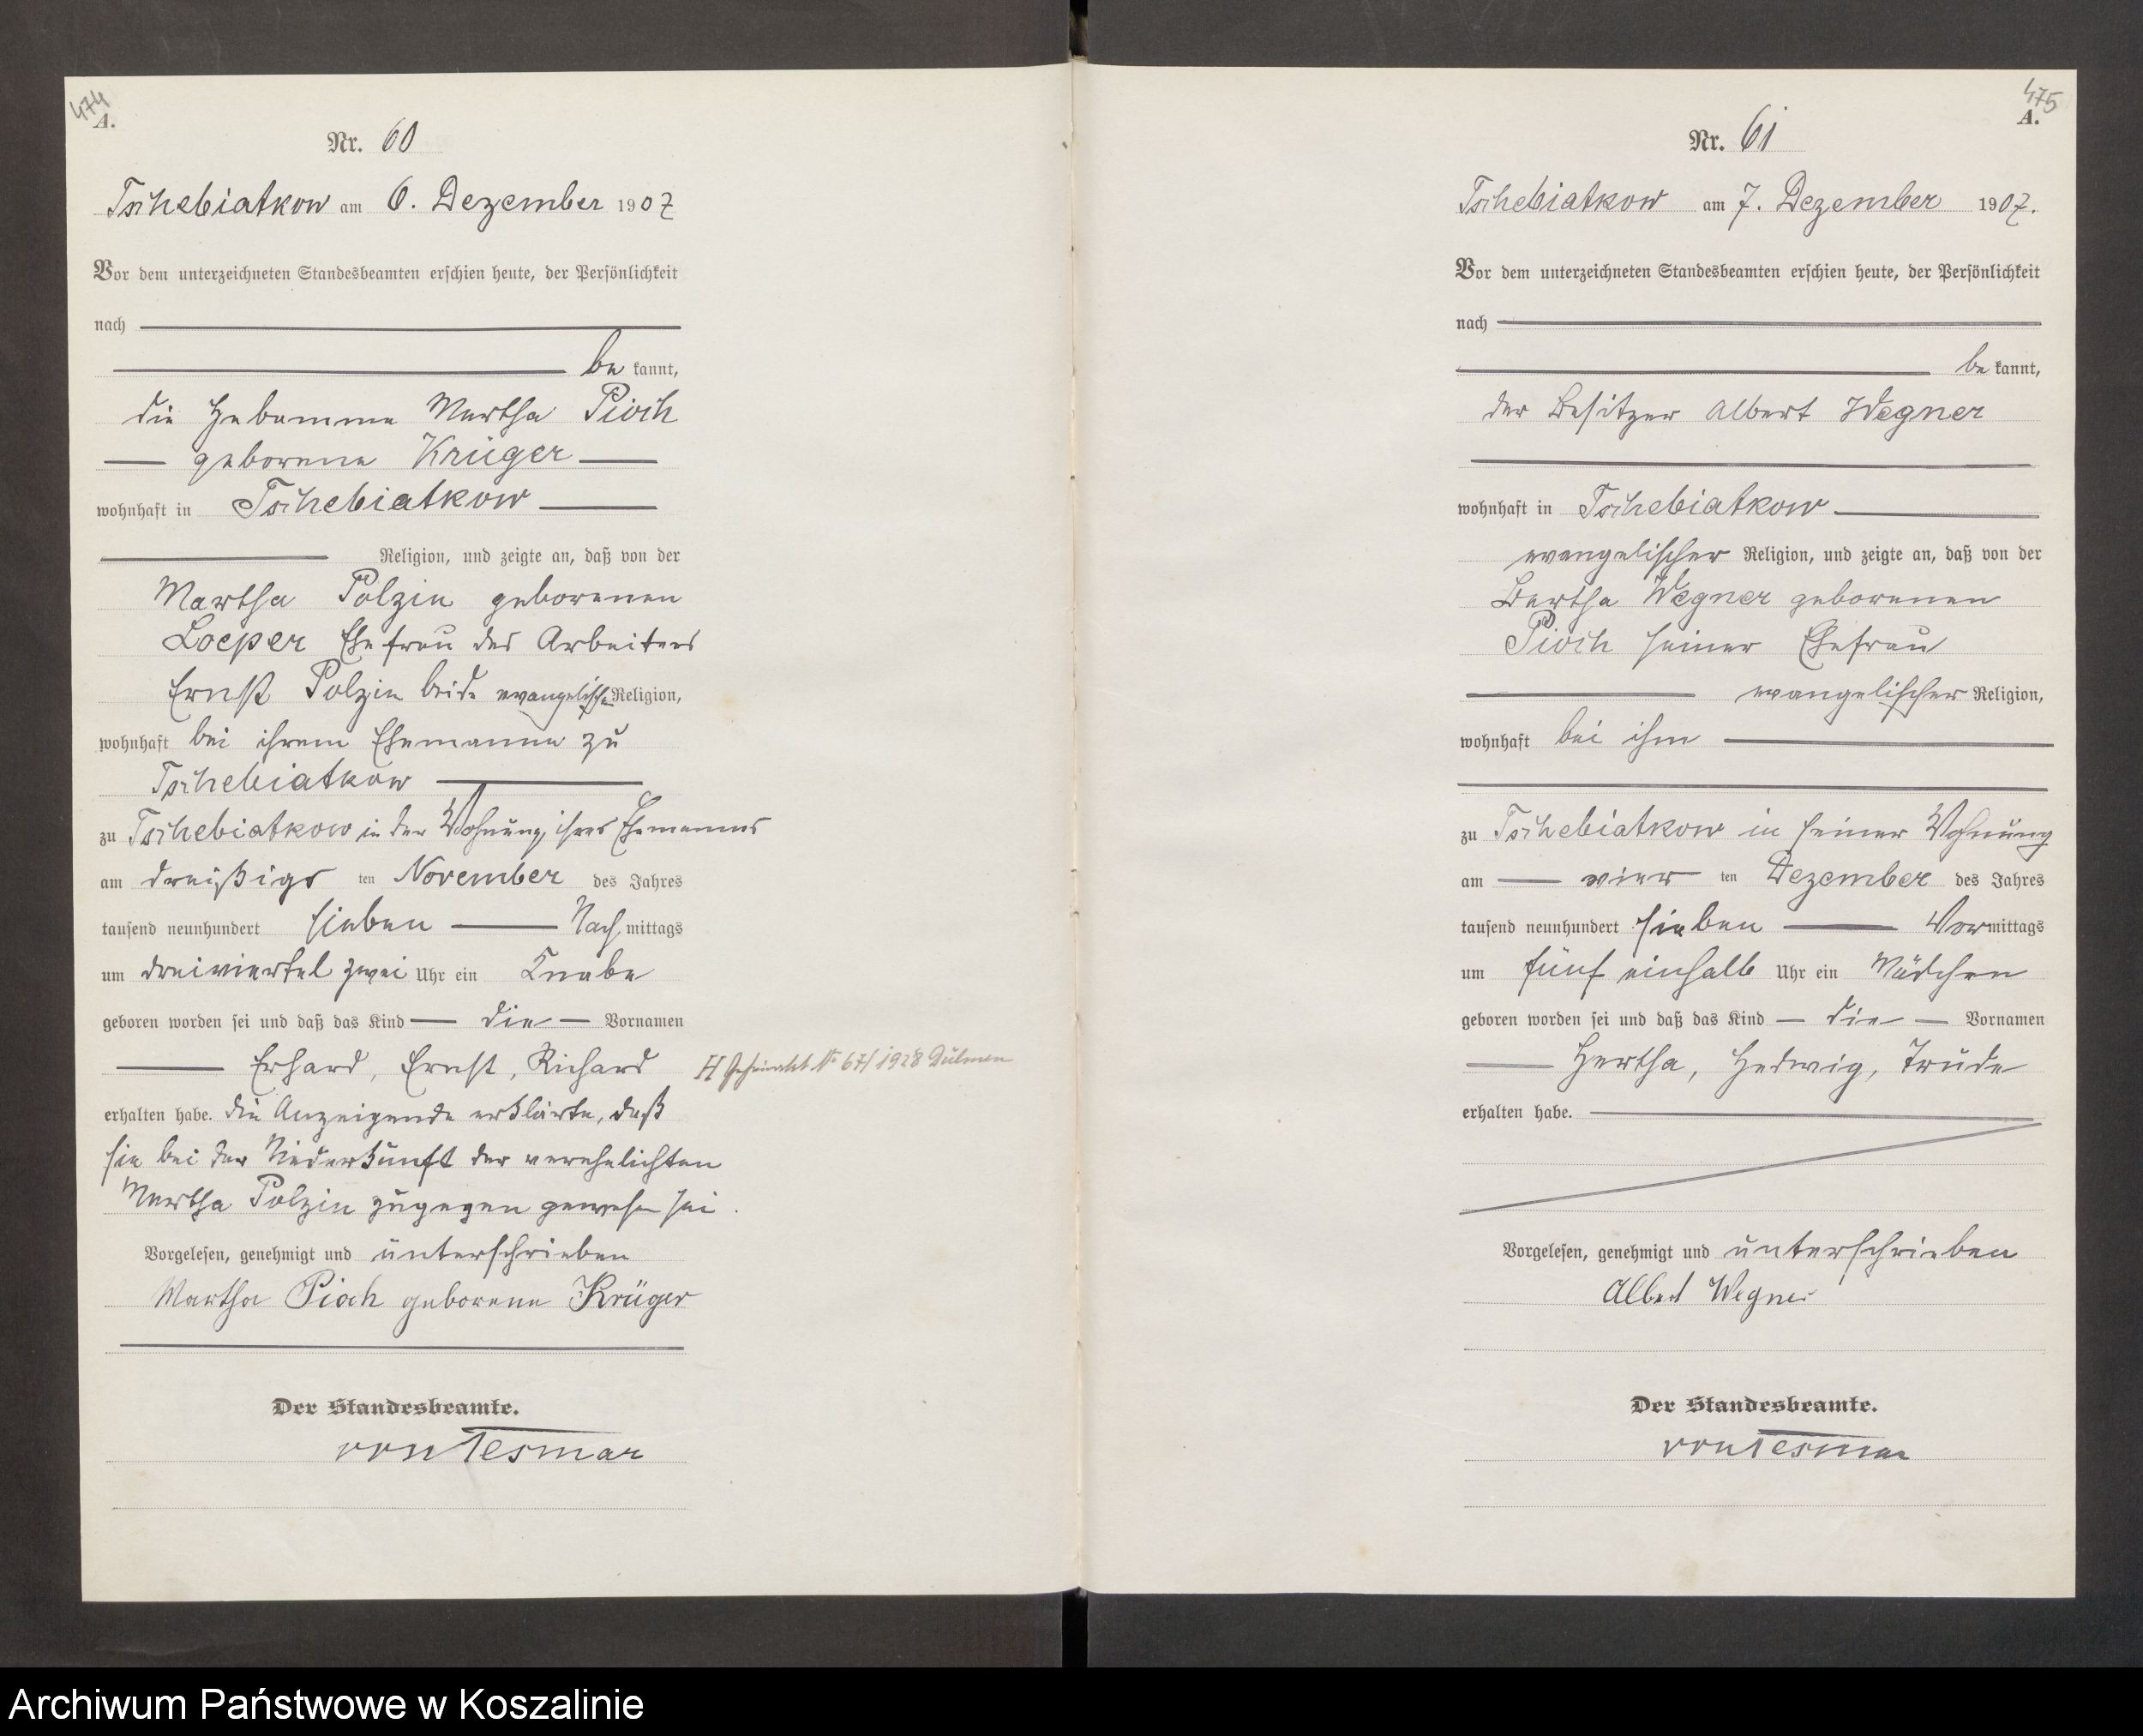 474
A.
Nr. 60
Tschebiatkow am 6. Dezember 1907
Vor dem unterzeichneten Standesbeamten erschien heute, der Persönlichkeit
nach
be kannt,
die Hebamme Martha Pioch
geborene Krüger
wohnhaft in Tschebiatkow
Religion, und zeigte an, daß von der
Martha Polzin geborenen
Loeper Ehefrau des Arbeiters
Ernst Polzin beide evangelischer Religion,
wohnhaft bei ihrem Ehemanne zu
Tschebiatkow
zu Tschebiatkow in der Wohnung ihres Ehemannes
am dreißigs ten November des Jahres
tausend neunhundert sieben Nach mittags
um dreiviertel zwei Uhr ein Knabe
geboren worden sei und daß das Kind die Vornamen
Erhard, Ernst, Richard
H Geheiratet No 67/1928 Dülmen
erhalten habe. Die Anzeigende erklärte, daß
sie bei der Niederkunft der verehelichten
Martha Polzin zugegen gewesen sei.
Vorgelesen, genehmigt und unterschrieben
Martha Pioch geborene Krüger
Der Standesbeamte.
von Tesmar
475
A.
Nr. 61
Tschebiatkow am 7. Dezember 1907.
Vor dem unterzeichneten Standesbeamten erschien heute, der Persönlichkeit
nach
be kannt,
der Besitzer Albert Wegner
wohnhaft in Tschebiatkow
evangelischer Religion, und zeigte an, daß von der
Bertha Wegner geborenen
Pioch seiner Ehefrau
evangelischer Religion,
wohnhaft bei ihm
zu Tschebiatkow in seiner Wohnung
am vier ten Dezember des Jahres
tausend neunhundert sieben Vormittags
um fünf einhalb Uhr ein Mädchen
geboren worden sei und daß das Kind die Vornamen
Hertha, Hedwig, Trude
erhalten habe.
Vorgelesen, genehmigt und unterschrieben
Albert Wegner
Der Standesbeamte.
von Tesmar
Archiwum Państwowe w Koszalinie